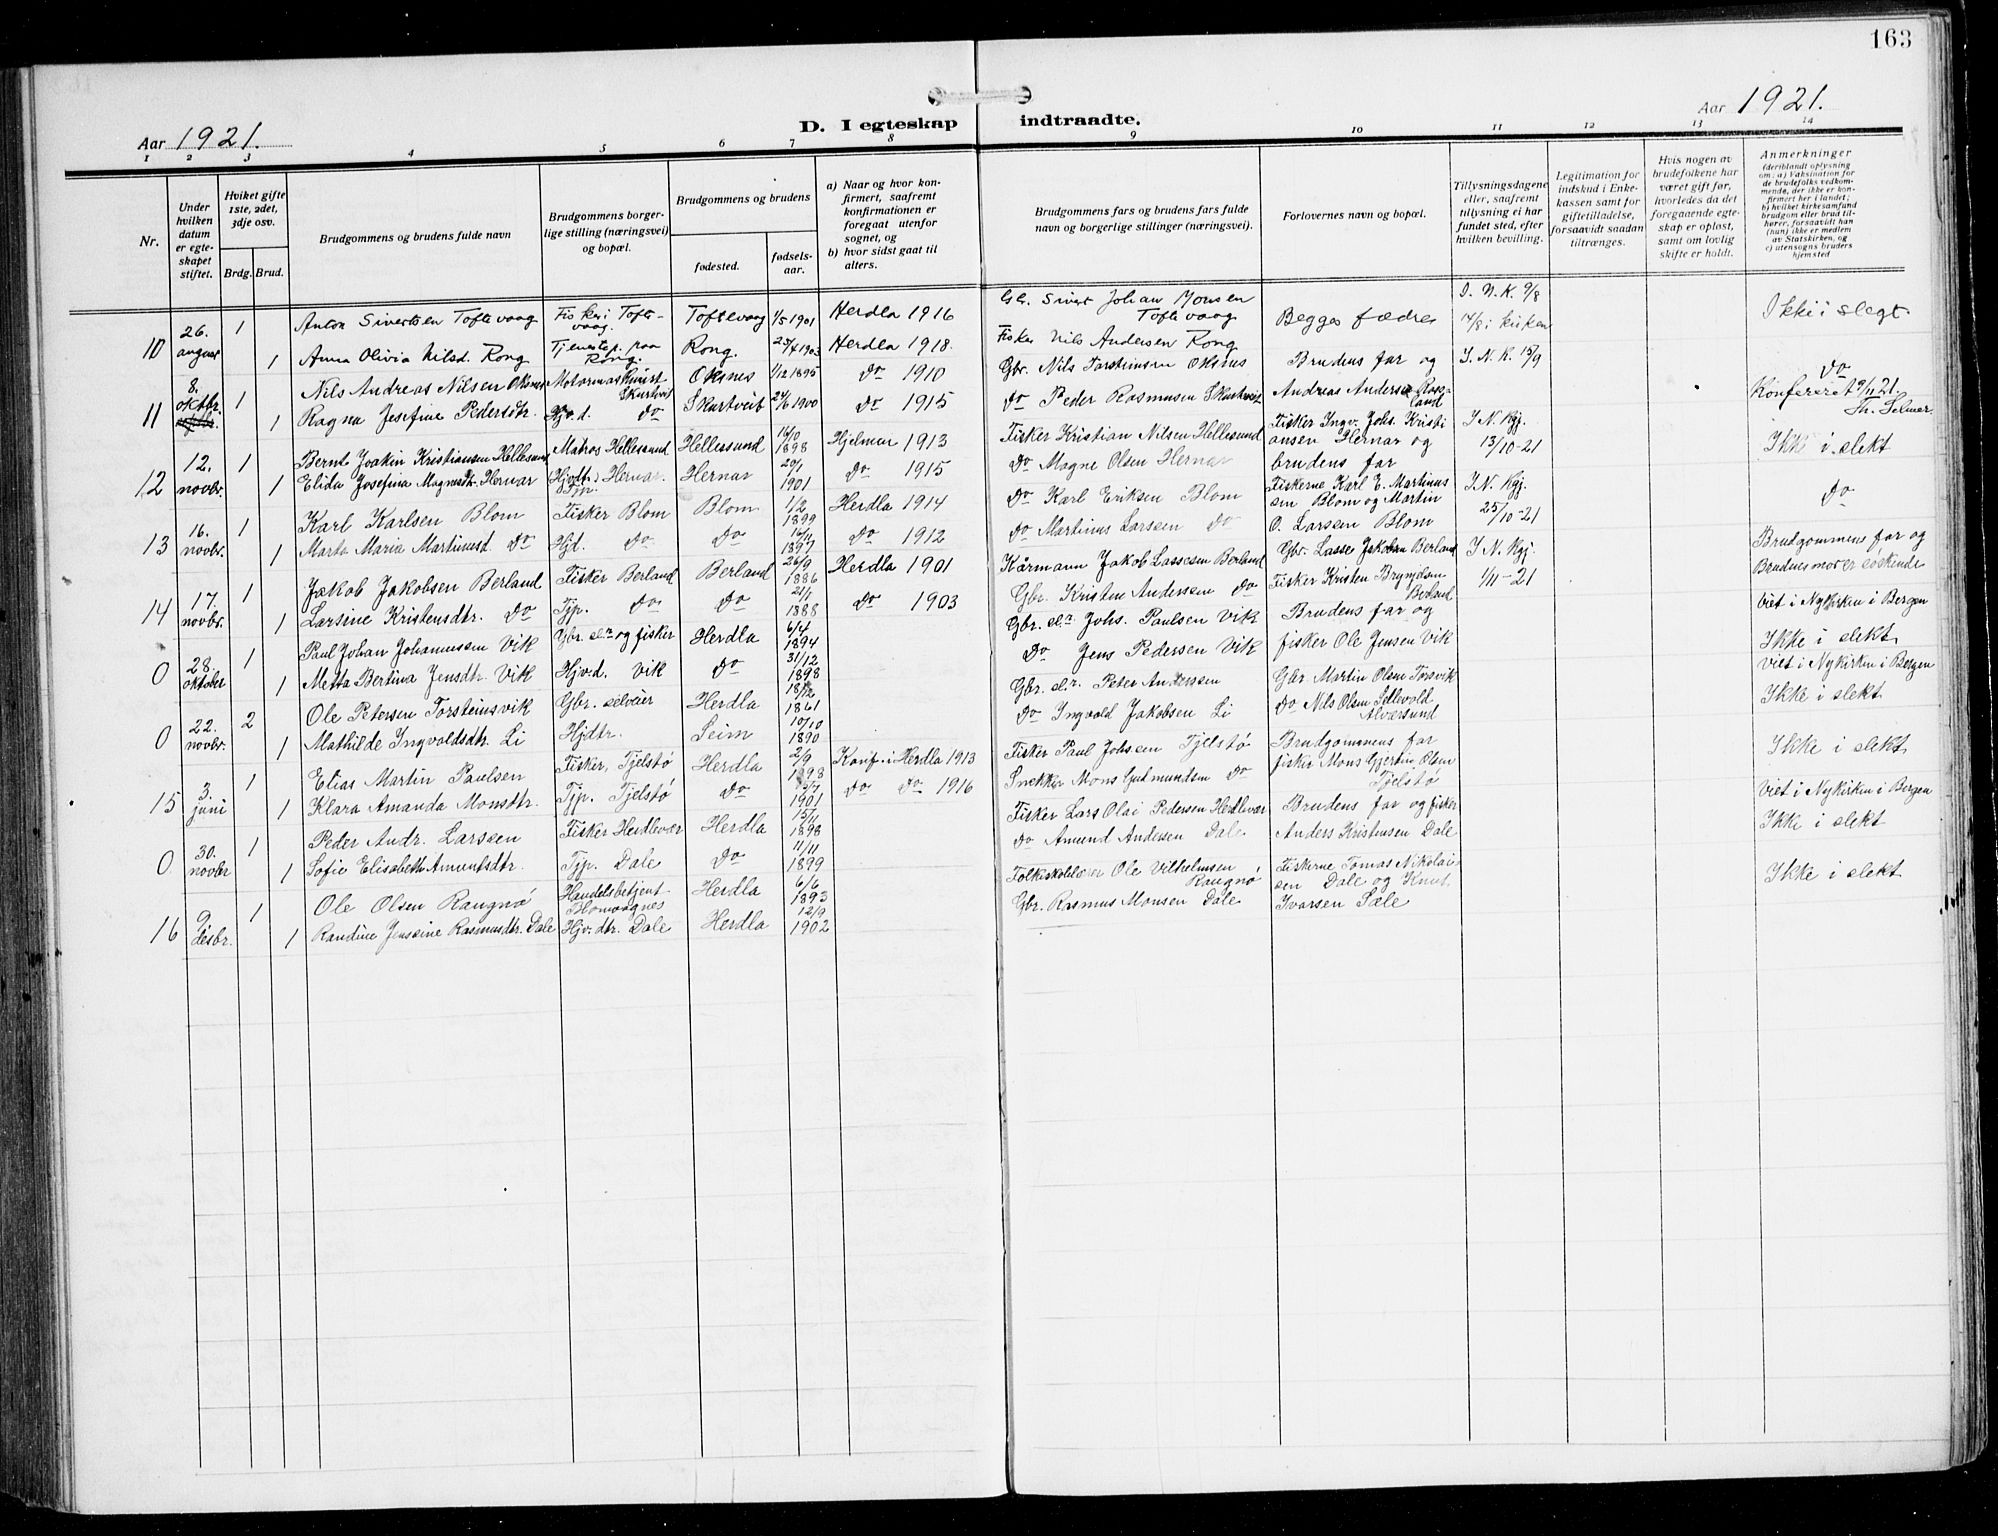 163
Aar 1921.
D. I egteskap indtraadte.
Aar 1921.
1 2 3 4 5 6 7 8 9 10 11 12 13 14
Nr.
Under hvilken datum er egteskapet stiftet.
Hviket gifte 1ste, 2det, 3dje osv.
Brdg. Brud.
Brudgommens og brudens fulde navn
Brudgommens borgerlige stilling (næringsvei) og bopæl.
Brudgommens og brudens
fødested.
fødselsaar.
a) Naar og hvor konfirmert, saafremt konfirmationen er foregaat utenfor sognet, og
b) hvor sidst gaat til alters.
Brudgommens fars og brudens fars fulde navn og borgerlige stillinger (næringsvei).
Forlovernes navn og bopæl.
Tillysningsdagene eller, saafremt tillysning ei har fundet sted, efter hvilken bevilling.
Legitimation for indskud i Enkekassen samt for giftetilladelse, forsaavidt saadan tiltrænges.
Hvis nogen av brudefolkene har været gift før, hvorledes da det foregaaende egteskap er opløst, samt om lovlig skifte er holdt.
Anmerkninger
(deriblandt oplysning om: a) Vaksination for de brudefolks vedkommende, der ikke er konfirmert her i landet; b) hvilket kirkesamfund brudgom eller brud tilhører, forsaavidt han (hun) ikke er medlem av Statskirken, og c) utensogns bruders hjemsted
10 26. august 1 Anton Sivertsen Toftevaag Fisker i Toftevaag. Toftevaag 1/5 1901 Herdla 1916 Gbr. Sivert Johan Monsen Toftevaag Begges fædre I. N. K. 9/8 14/8 i kirken Ikke i slegt
1 Anna Olivia Nilsd. Rong Tjenestep. paa Rong. Rong. 23/7 1903 Herdla 1918. Fisker Nils Andersen Rong
11 8. oktbr. 1 Nils Andreas Nilsen Oksnes Motormaskinist Skurtveit Oksnes 1/12 1895 do 1910 Gbr. Nils Torsteinsen Oksnes Brudens far og I. N. K. 15/9 do
1 Ragna Josefine Pedersdtr. Hjv.d. do Skurtveit 24/6 1900 do 1915 do Peder Rasmussen Skurtveit Andreas Andersen Konfereret 19/11 21. Th. Selmer.
12 12. novbr. 1 Bernt Joakin Kristiansen Hellesund Matros Hellesund Hellesund 16/10 1898 Hjelmar 1913 Fisker Kristian Nilsen Hellesund Fisker Ingv. Johs. Kristiansen Hernar og I N. Kgj. 13/10-21 Ikke i slekt
1 Elida Josefina Magnesdtr. Hernar Hjvdtr. Hernar. Tjp. Hernar 20/1 1901 do 1915 do Magne Olsen Hernar brudens far
13 16. novbr. 1 Karl Karlsen Blom Fisker Blom Blom 1/2 1899 Herdla 1914 do Karl Eriksen Blom Fiskerne Karl E. Martinussen Blom og Martin I N. Kgj. 25/10-21 do
1 Marta Maria Martinusd. do Hjd. do do 16/11 1897 do 1912 do Martinus Larssen do O. Larsen Blom
14 17. novbr. 1 Jakob Jakobsen Berland Fisker Berland Berland 26/9 1886 Herdla 1901 Kårmann Jakob Lassesen Berland Gbr. Lasse Jakobsen Berland I N. Kgj. 1/11-21 Brudgommens far og
1 Larsine Kristensdtr. do Tjp. do do 21/1 1888 do 1903 Gbr. Kristen Andersen do Fisker Kristen Brynjulsen Berland Brudnes mor er søskende
0 28. oktober 1 Paul Johan Johannessen Vik Gbr. el.r og fisker Herdla 6/4 1894 Gbr. el.r Johs. Paulsen Vik Brudens far og viet i Nykirken i Bergen
1 Metta Bertina Jensdtr Vik Hjv.d. Vik do 31/12 1898 do Jens Pedersen Vik fisker Ole Jensen Vik Ikke i slekt
0 22. novbr. 2 Ole Petersen Torsteinsvik Gbr. selveier Herdla 18/12 1861 Gbr. el.r Peter Anderssen Gbr Martin Olsen Torsvik viet i Nykirken i Bergen
1 Mathilde Ingvoldsdtr. Li Hjdtr. Seim 10/10 1890 do Ingvold Jakobsen Li do Nils Olsen Sellevold Alversund Ikke i slekt
15 3. juni 1 Elias Martin Paulsen Fisker, Tjelstø Herdla 2/9 1898 Konf. i Herdla 1913 Fisker Paul Johsen Tjelstø Brudgommens far Ikke i slekt
1 Klara Amanda Monsdtr. Tjp. Tjelstø do 1901 do do 1916 Snekker Mons Gudmundsen do fisker Mons Gjertin Olsen Tjelstø
0 30. novbr 1 Peder Andr. Larssen Fisker Herdlevær Herdla 15/11 1898 Fisker Lars Olai Pedersen Herdlevær Brudens far og fisker viet i Nykirken i Bergen
1 Sofie Elisabeth Amundsdtr. Tjp. Dale do 11/11 1899 do Amund Andesen Dale Anders Kristensen Dale Ikke i slekt
16 9 desbr. 1 Ole Olsen Rangnø Handelsbetjent Herdla 6/6 1893 Folkeskolelærer Ole Vilhelmsen Rangnø Fiskerne Tomas Nikolaisen Dale og Knut Ikke i slekt
1 Randine Jensine Rasmusdtr. Dale Hjv. dtr. Dale Herdla 12/9 1902 Gbr. Rasmus Monsen Dale Ivarsen Sæle